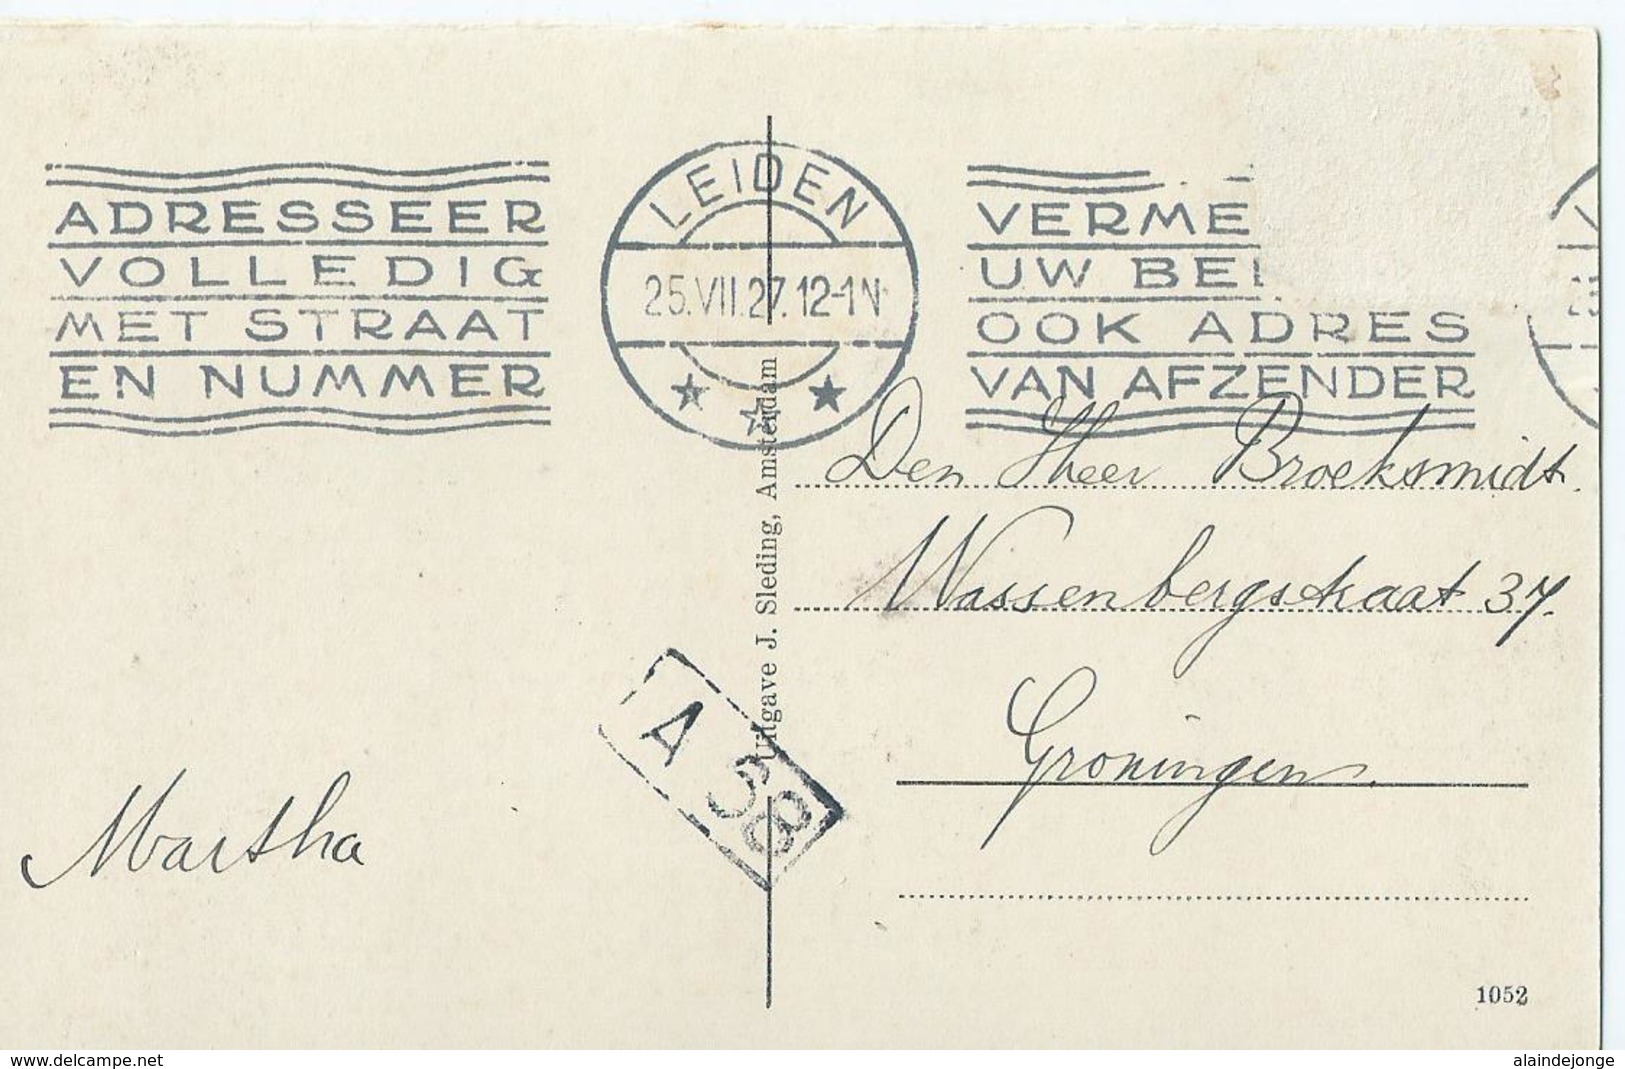 ADRESSEER
VOLLEDIG
MET STRAAT
EN NUMMER
LEIDEN
25.VII.27.12-1N
VERME
UW BE
OOK ADRES
VAN AFZENDER
Den Heer Broeksmidt.
Wassenbergstraat 37.
Groningen.
Uitgave J. Sleding, Amsterdam
A 38
Martha
1052
www.delcampe.net
alaindejonge